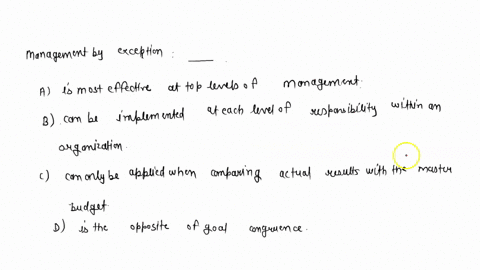 management by exception : ___ .
A) is most effective at top levels of management.
B) can be implemented at each level of responsibility within an
organization.
c) can only be applied when comparing actual results with the master
budget
D) is the opposite of goal congruence.